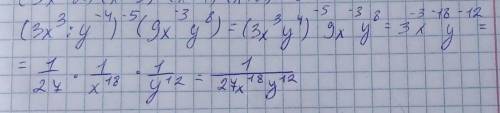 (3x³:y⁻⁴)⁻⁵(9x⁻³y⁸) = (3x³y⁴)⁻⁵ 9x⁻³y⁸ = 3⁻³x⁻¹⁸y⁻¹² =
= 1/27 · 1/x¹⁸ · 1/y¹² = 1/27x¹⁸y¹²